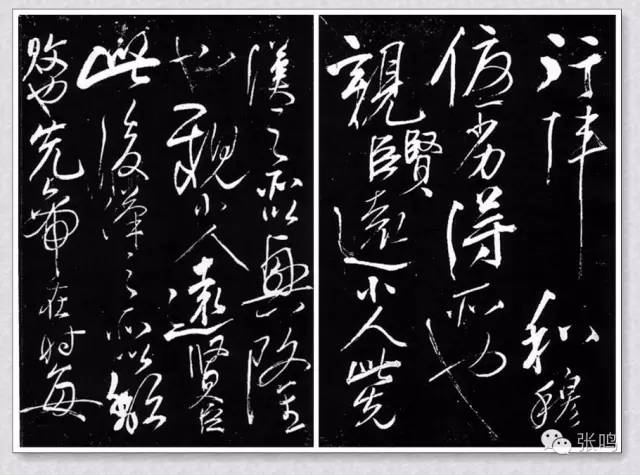 行陣和穆
優劣得所也
親賢臣遠小人此先
漢之所以興隆
也親小人遠賢臣
此後漢之所以頹
敗也先帝在時每
张鸣